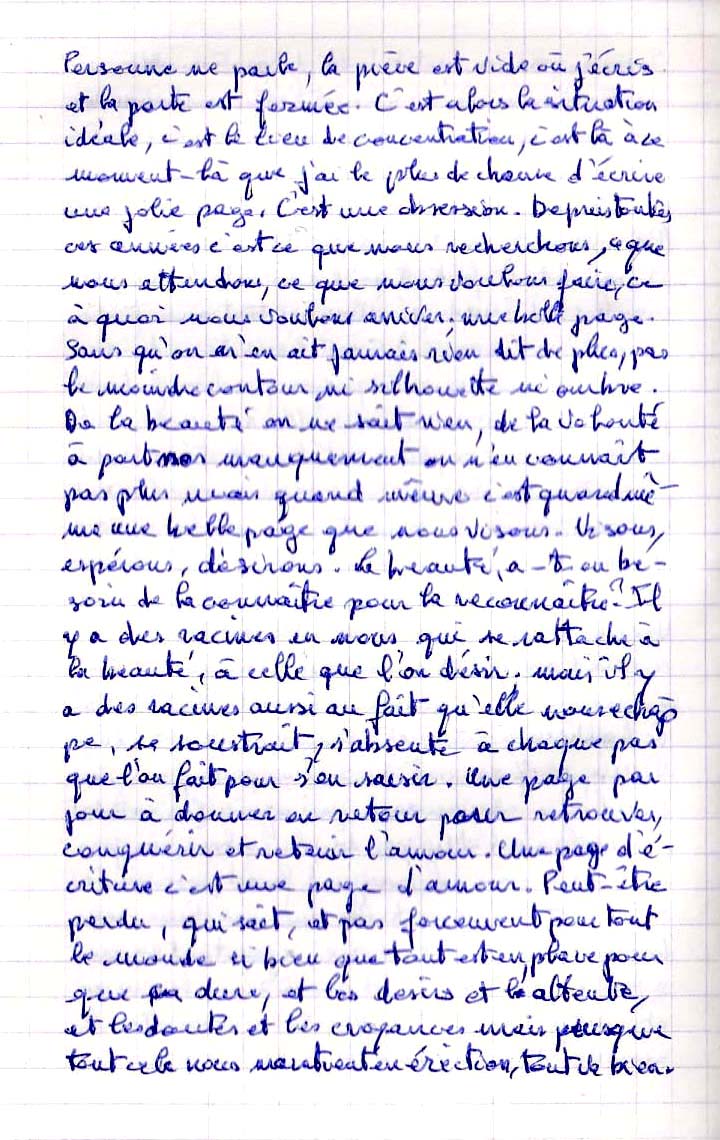 Personne ne parle, la pièce est vide où j'écris
et la porte est fermée. C'est alors la situation
idéale, c'est le lieu de concentration, c'est là à ce
moment-là que j'ai le plus de chance d'écrire
une jolie page. C'est une obsession. Depuis toutes
ces années c'est ce que nous recherchons, ce que
nous attendons, ce que nous voulons faire, ce
à quoi nous voulons arriver: une belle page.
Sans qu'on n'en ait jamais rien dit de plus, pas
le moindre contour, ni silhouette ni ombre.
De la beauté on ne sait rien, de la volonté
à part nos manquement on n'en connaît
pas plus mais quand même c'est quand mê-
me une belle page que nous visons. Visons,
espérons, désirons. La beauté, a-t-on be-
soin de la connaître pour la reconnaître? Il
y a des racines en nous qui se rattache à
la beauté, à celle que l'on désir; mais il y
a des racines aussi au fait qu'elle nous échap
pe, se soustrait, s'absente à chaque pas
que l'on fait pour s'en saisir. Une page par
jour à donner en retour pour retrouver,
conquérir et retenir l'amour. Une page d'é-
criture c'est une page d'amour. Peut-être
perdu, qui sait, et pas forcément pour tout
le monde si bien que tout est en place pour
que ça dure, et les désirs et l'attente,
et les doutes et les croyances mais puisque
tout cela nous maintient en érection, tout va bien.